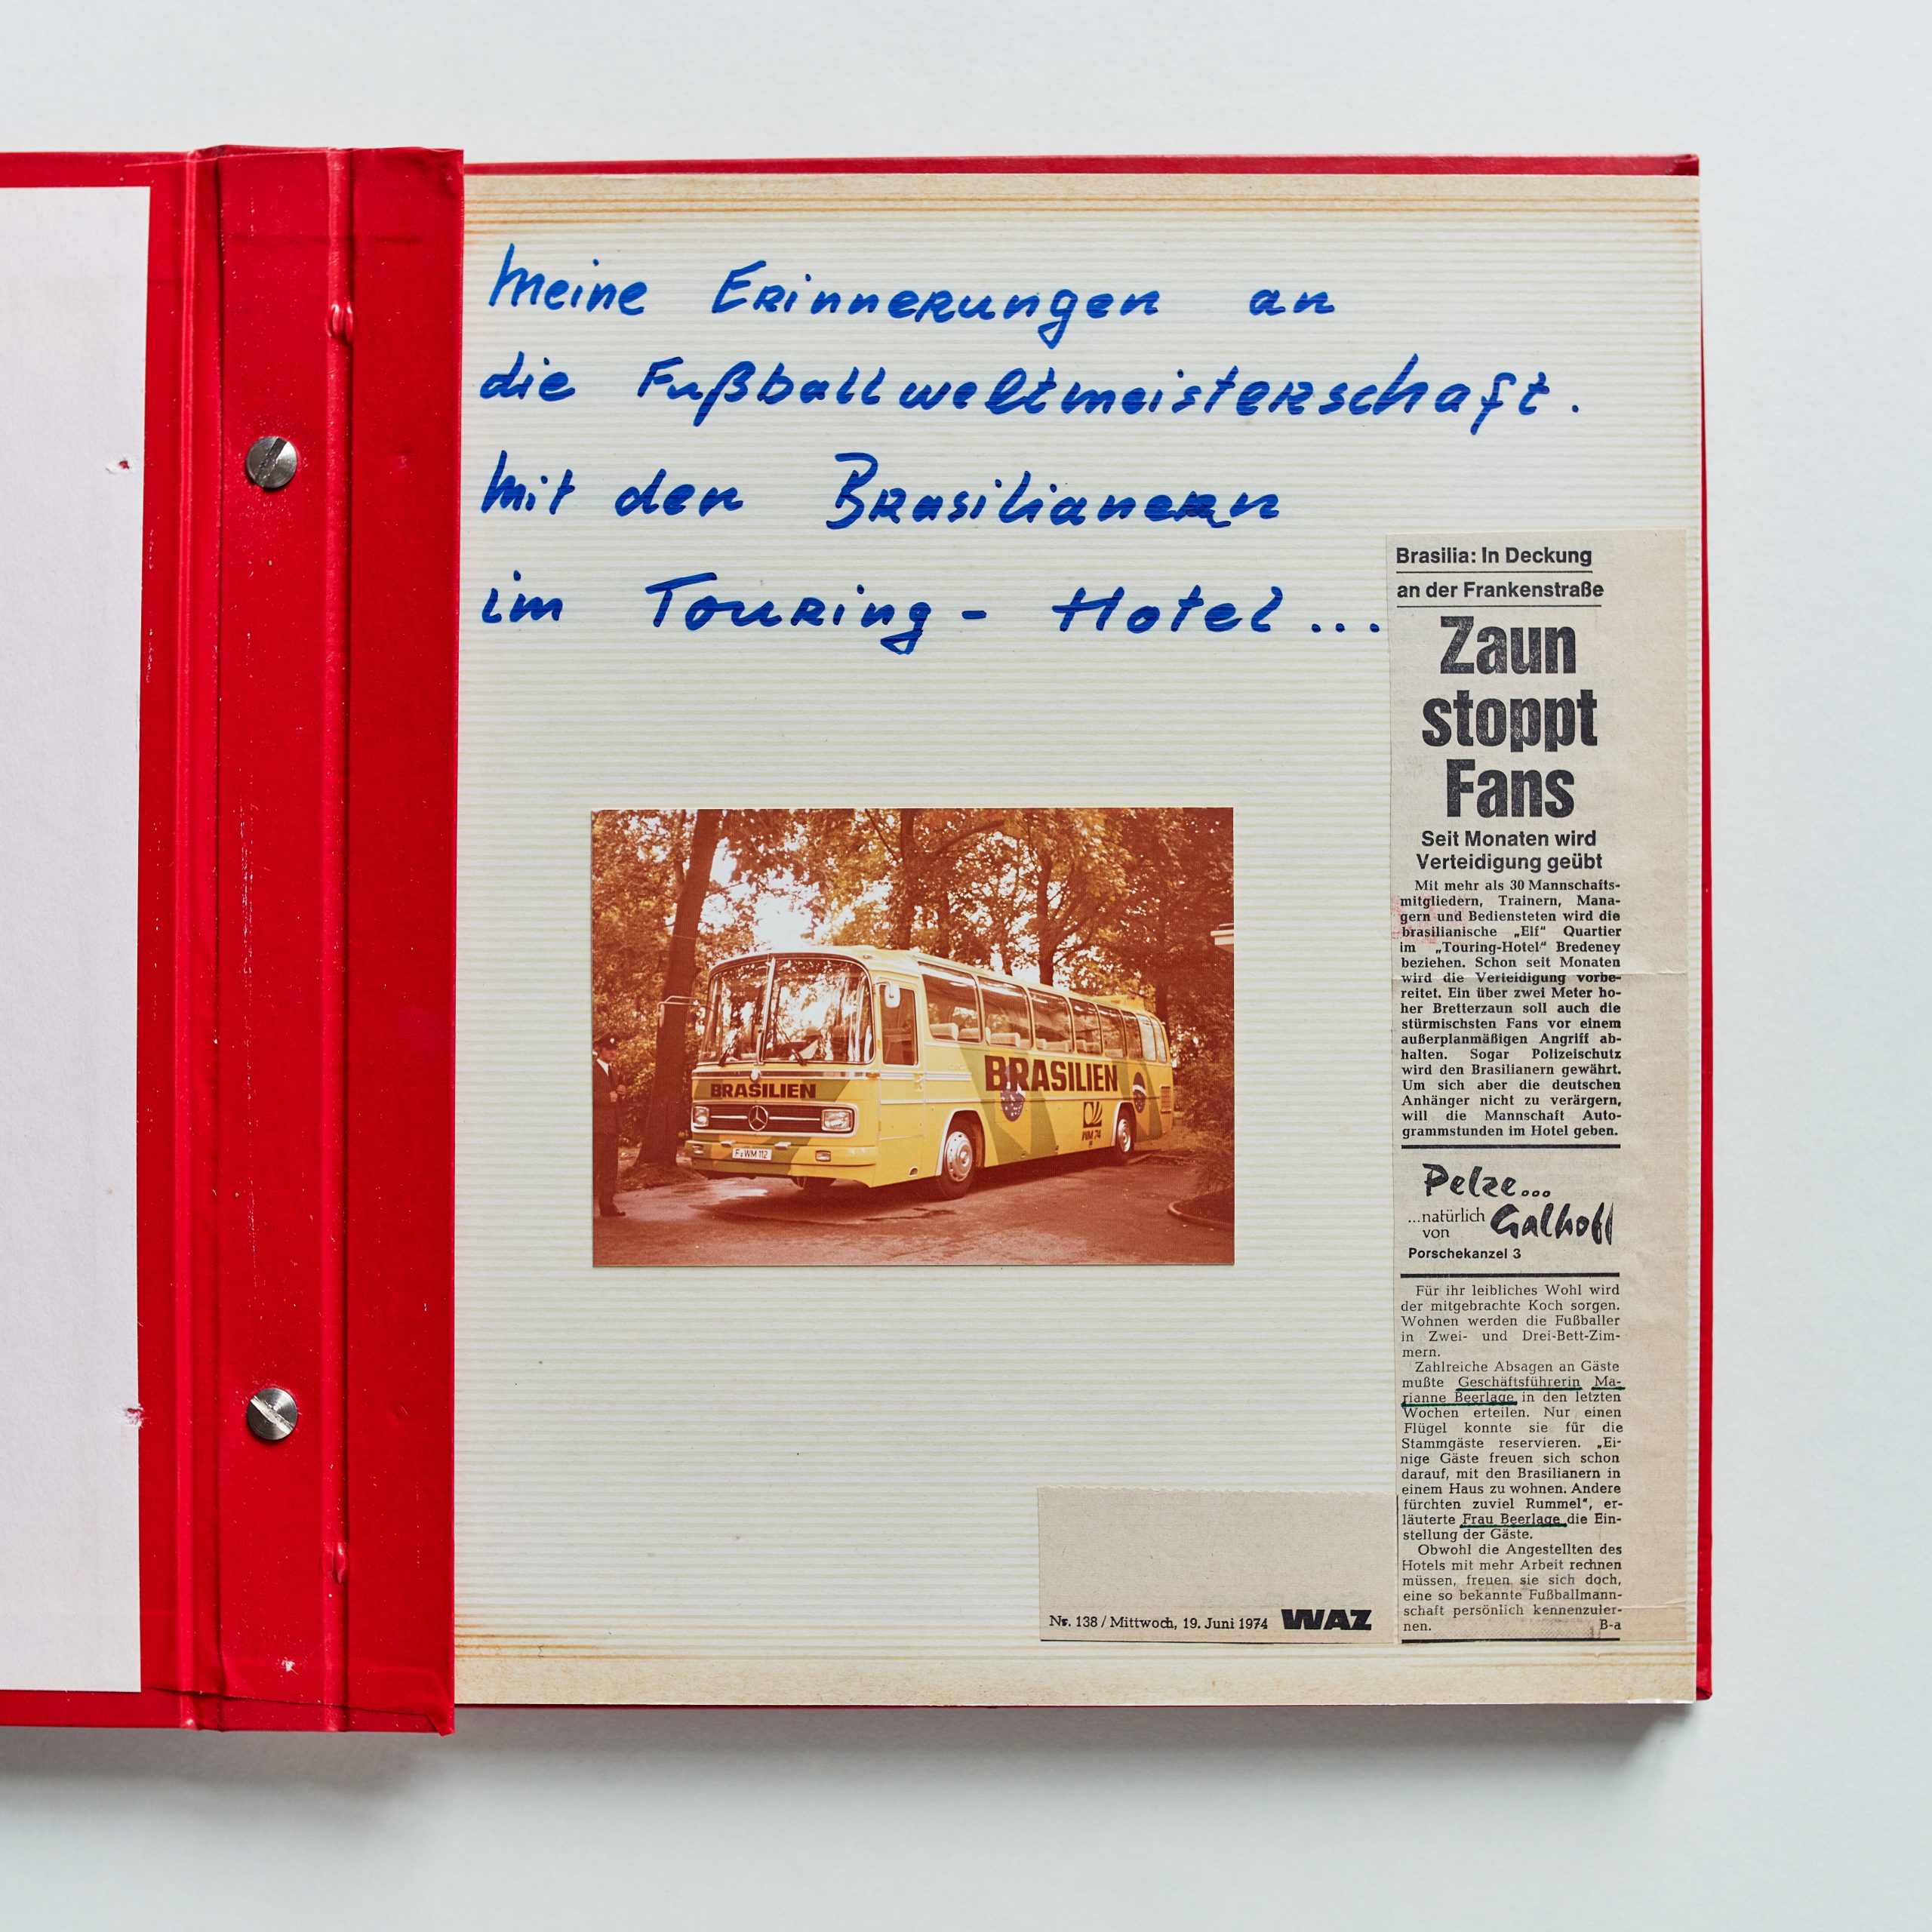 Meine Erinnerungen an
die Fußballweltmeisterschaft.
Mit den Brasilianern
im Touring-Hotel...
BRASILIEN
BRASILIEN
WM 74
F-WM 112
Brasilia: In Deckung
an der Frankenstraße
Zaun
stoppt
Fans
Seit Monaten wird
Verteidigung geübt
Mit mehr als 30 Mannschafts-
mitgliedern, Trainern, Mana-
gern und Bediensteten wird die
brasilianische „Elf“ Quartier
im „Touring-Hotel“ Bredeney
beziehen. Schon seit Monaten
wird die Verteidigung vorbe-
reitet. Ein über zwei Meter ho-
her Bretterzaun soll auch die
stürmischsten Fans vor einem
außerplanmäßigen Angriff ab-
halten. Sogar Polizeischutz
wird den Brasilianern gewährt.
Um sich aber die deutschen
Anhänger nicht zu verärgern,
will die Mannschaft Auto-
grammstunden im Hotel geben.
Pelze...
...natürlich
von Galhoff
Porschekanzel 3
Für ihr leibliches Wohl wird
der mitgebrachte Koch sorgen.
Wohnen werden die Fußballer
in Zwei- und Drei-Bett-Zim-
mern.
Zahlreiche Absagen an Gäste
mußte Geschäftsführerin Ma-
rianne Beerlage in den letzten
Wochen erteilen. Nur einen
Flügel konnte sie für die
Stammgäste reservieren. „Ei-
nige Gäste freuen sich schon
darauf, mit den Brasilianern in
einem Haus zu wohnen. Andere
fürchten zuviel Rummel“, er-
läuterte Frau Beerlage die Ein-
stellung der Gäste.
Obwohl die Angestellten des
Hotels mit mehr Arbeit rechnen
müssen, freuen sie sich doch,
eine so bekannte Fußballmann-
schaft persönlich kennenzuler-
nen. B-a
Nr. 138 / Mittwoch, 19. Juni 1974 WAZ